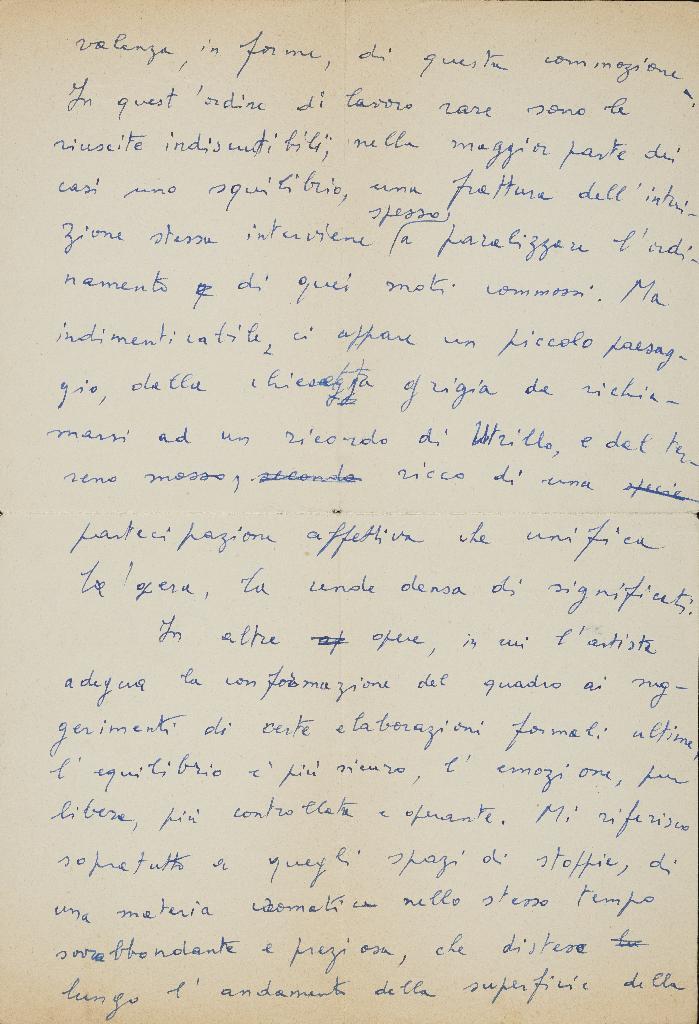 valenza, in forme, di questa commozione.
In quest'ordine di lavoro rare sono le
riuscite indiscutibili; nella maggior parte dei
casi uno squilibrio, una frattura dell'intui-
spesso
zione stessa interviene a paralizzare l'ordi-
namento di quei moti commossi. Ma
indimenticabile, ci appare un piccolo paesag-
gio, dalla chiesa grigia da richia-
marsi ad un ricordo di Utrillo, e dal ter-
reno mosso, secondo ricco di una specie
partecipazione affettiva che unifica
l'opera, la rende densa di significati.
In altre op opere, in cui l'artista
adegua la conformazione del quadro ai sug-
gerimenti di certe elaborazioni formali ultime,
l'equilibrio è più sicuro, l'emozione, pur
libera, più controllata e operante. Mi riferisco
sopratutto a quegli spazi di stoppie, di
una materia cromatica nello stesso tempo
sovrabbondante e preziosa, che distesa
lungo l'andamento della superficie della